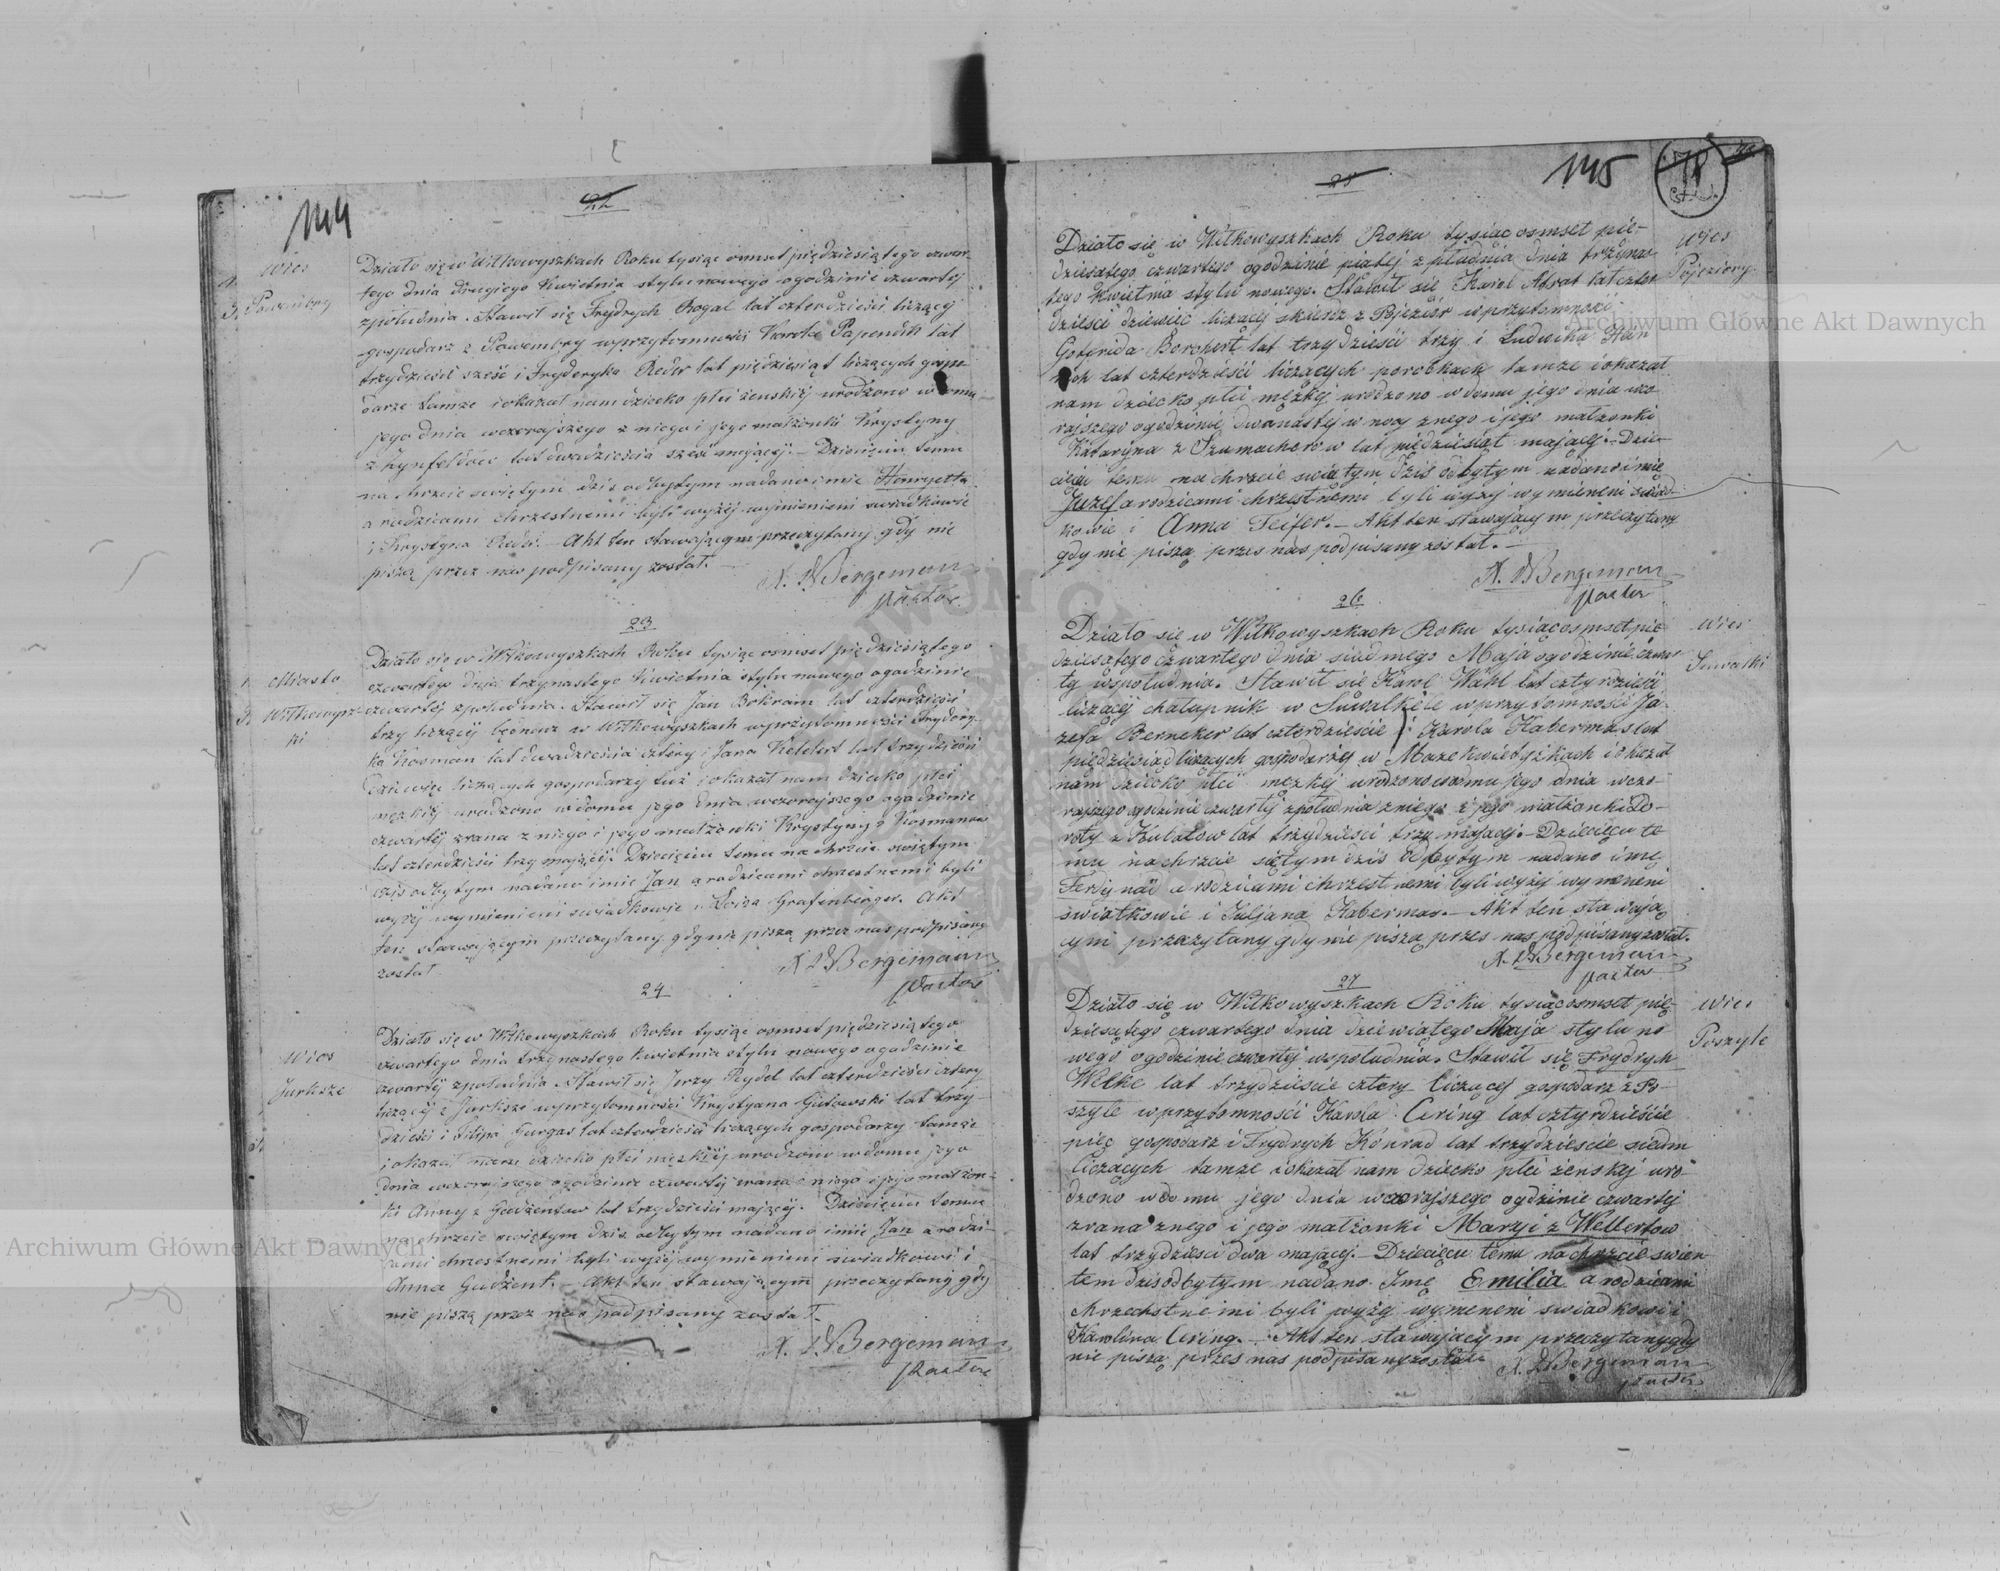 144
22
Wieś
Powembry
Działo się w Wilkowyszkach Roku tysiąc osmset piędziesiątego czwar-
tego dnia drugiego Kwietnia stylu nowego ogodzinie czwartej
zpołudnia. Stawił się Frydrych Rogal lat czterdzieści liczący
gospodarz z Powembry wprzytomności Karola Papendik lat
trzydzieści sześć i Fryderyka Reder lat piędziesiąt liczących gospo-
darze tamze i okazał nam dziecko płci żenskiej urodzono w domu
jego dnia wczorajszego z niego i jego małżonki Krystyny
z lat dwadzieścia sześć mającej. – Dziecięciu temu
na chrzcie świętym dziś odbytym nadano imie Henryetta
a rodzicami chrzestnemi byli wyżej wymienieni swiadkowie
i Krystyna Reder. – Akt ten stawającym przeczytany gdy nie
piszą przez nas podpisany został. –
X. Bergeman
Pastor
23
Miasto
Wilkowysz-
ki
Działo się w Wilkowyszkach Roku tysiąc osmset piędziesiątego
czwartego dnia trzynastego Kwietnia stylu nowego ogodzinie
czwartej zpołudnia. Stawił się Jan Bokrain lat czterdzieści
trzy liczący w Wilkowyszkach wprzytomności Frydery-
ka Kosman lat dwadzieścia cztery i Jana Kelelert lat trzydzieści
dziewięć liczących gospodarzy tuż i okazał nam dziecko płci
męzkiej urodzono wdomu jego dnia wczorajszego ogodzinie
czwartej zrana z niego i jego małżonki Krystyny z Kosmanow
lat czterdzieści trzy mającej. Dziecięciu temu na chrzcie świętym
dziś odbytym nadano imie Jan a rodzicami chrzestnemi byli
wyżej wymienieni swiadkowie i Loiza Grafenberger. Akt
ten stawającym przeczytany gdy nie piszą przez nas podpisany
został
X. Bergeman
Pastor
24
Wieś
Jurksze
Działo się w Wilkowyszkach Roku tysiąc osmset piędziesiątego
czwartego dnia trzynastego Kwietnia stylu nowego ogodzinie
czwartej zpołudnia. Stawił się Jerzy Reydel lat czterdzieści cztery
liczący z Jurksze wprzytomności Krystyana Gutowski lat trzy-
dzieści i Filipa Gurgas lat czterdzieści liczących gospodarzy tamże
i okazał nam dziecko płci męzkiej urodzono wdomu jego
dnia wczorajszego ogodzinie czwartej zrana z niego i jego małżon-
ki Anny z Gudżentow lat trzydzieści mającej. Dziecięciu temu
na chrzcie świętym dziś odbytym nadano imie Jan a rodzi-
cami chrzestnemi byli wyżej wymienieni swiadkowi i
Anna Gudżent. – Akt ten stawającym przeczytany gdy
nie piszą przez nas podpisany został.
X. Bergeman
Pastor
145
25
78
Wieś
Pojeziory
Działo się w Wilkowyszkach Roku tysiąc osmset pię-
dziesątego czwartego ogodzinie piątej z płudnia dnia trzynas-
tego Kwietnia stylu nowego. Stawił się Karol Abrat lat czter-
dzieści dziewięć liczący z Pojezior wprzytomności
Gotfrida Borchert lat trzydzieści trzy i Ludwika
lat czterdzieści liczących porobkach tamze i okazał
nam dziecko płci męzkej urodzono wdomu jego dnia wczo-
rajszego ogodzinie dwanastej w nocy znego i jego malżonki
Kataryna z Szumacherow lat pięćdziesiąt mającej. – Dzie-
cięciu temu na chrzcie świętym dziś odbytym nadano imię
Juzef a rodzicami chrzestnemi byli wyżej wymieneni świad-
kowie i Anna Feifer. – Akt ten stawającym przeczytany
gdy nie piszą przes nas podpisany został. –
X. Bergeman
Pastor
26
Wieś
Suwalki
Działo się w Wilkowyszkach Roku tysiącosmset pię-
dziesątego czwartego dnia siudmego Maja ogodzinie czwar-
ty wspołudnia. Stawił się Karol Wahl lat cztyrdzieści
liczącej chałupnik w Suwalkele wprzytomności Ju-
zefa Berneker lat czterdzieście i Karola Habermas lat
pięćdziesiąd liczących gospodarzej w Mazekowietyszkach i okazał
nam dziecko płci męzkej urodzono wdomu jego dnia wczo-
rajszego ogdzinie czwartej zpołudnia zniego i jego małżonki Do-
roty z Kulalow lat trzydzieści trzy mającej. – Dziecięcu te-
mu na chrzcie siętym dziś odbytym nadano imę
Ferdynad a rodzicami chrzestnemi byli wyżej wymeneni
świattkowie i Juljana Habermas. – Akt ten stawają-
cym przeczytany gdy nie piszą przes nas podpisany został.
X. Bergeman
Pastor
27
Wieś
Poszyle
Działo się w Wilkowyszkach Roku tysiącosmset pię-
dziesątego czwartego dnia dziewiatego Maja stylu no-
wego ogodzinie czwartej wspołudnia. Stawił się Frydrych
Welke lat trzydzieście cztery liczącej gospodarz z Po-
szyle wprzytomnośći Karola Cering lat cztyrdzieście
pięc gospodarz i Frydrych Konrad lat trzydzieście siedm
liczących tamze i okazał nam dziecko płci żenskej uro-
dzono wdomu jego dnia wczorajszego ogdzinie czwartej
zrana znego i jego malżonki Maryji z Wellertow
lat trzydzieści dwa mającej. – Dziecięcu temu na chrzcie świen-
tem dzisodbytym nadano Imę Emilia a rodzicami
chrzechstnemi byli wyżej wymeneni swiadkowi i
Karolina Cering. – Akt ten stawającym przeczytany gdy
nie piszą przes nas podpisany został
X. Bergeman
Pastor
Archiwum Główne Akt Dawnych
Archiwum Główne Akt Dawnych